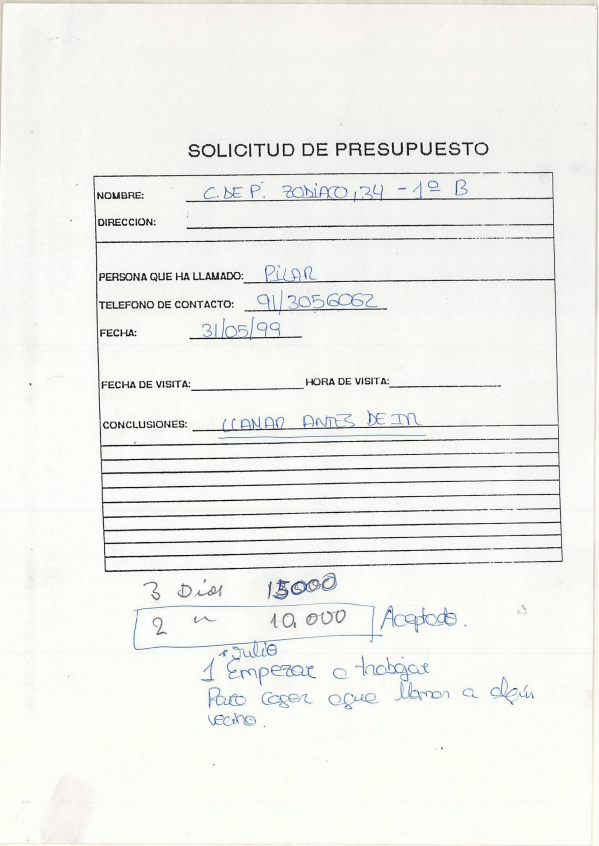 SOLICITUD DE PRESUPUESTO
NOMBRE: C. DE P. ZODIACO, 34 - 1º B
DIRECCION:
PERSONA QUE HA LLAMADO: PILAR
TELEFONO DE CONTACTO: 91/3056062
FECHA: 31/05/99
FECHA DE VISITA: HORA DE VISITA:
CONCLUSIONES: LLAMAR ANTES DE IR
3 Días 15000
2 " 10,000 Aceptado.
Julio
1 Empezar a trabajar
Para coger agua llamar a algún
vecino.